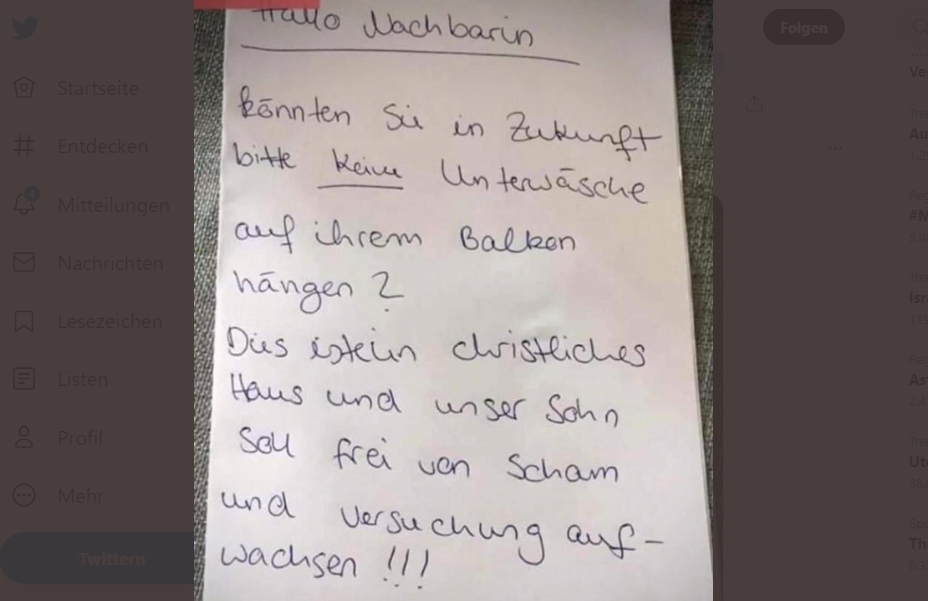 Hallo Nachbarin
könnten Sie in Zukunft
bitte keine Unterwäsche
auf ihrem Balkon
hängen?
Dies ist ein christliches
Haus und unser Sohn
soll frei von Scham
und Versuchung auf-
wachsen !!!
Startseite
Entdecken
Mitteilungen
Nachrichten
Lesezeichen
Listen
Profil
Mehr
Twittern
Folgen